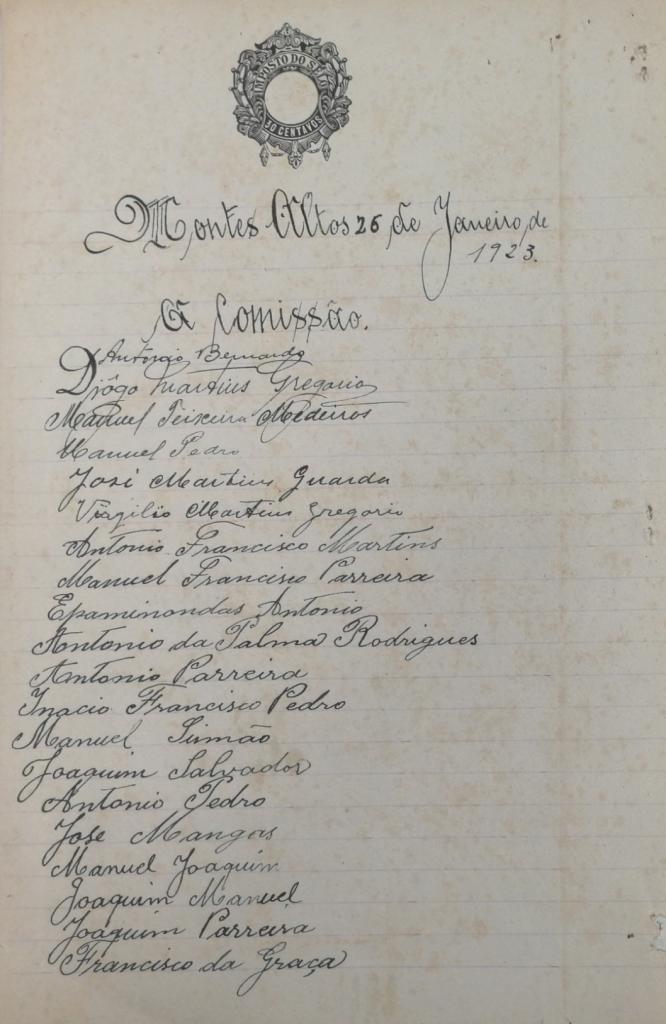 IMPOSTO DO SELO
30 CENTAVOS
Montes Altos 26 de Janeiro, de
1923.
A Comissão.
António Bernardo
Diôgo Martins Gregorio
Manuel Teixeira Medeiros
Manuel Pedro
José Martins Guarda
Virgilio Martins Gregorio
Antonio Francisco Martins
Manuel Francisco Parreira
Epaminondas Antonio
Antonio da Palma Rodrigues
Antonio Parreira
Inacio Francisco Pedro
Manuel Simão
Joaquim Salvador
Antonio Pedro
José Mangas
Manuel Joaquim
Joaquim Manuel
Joaquim Parreira
Francisco da Graça